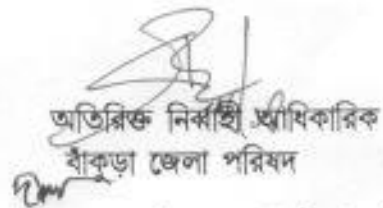 অতিরিক্ত নির্বাহী আধিকারিক
বাঁকুড়া জেলা পরিষদ